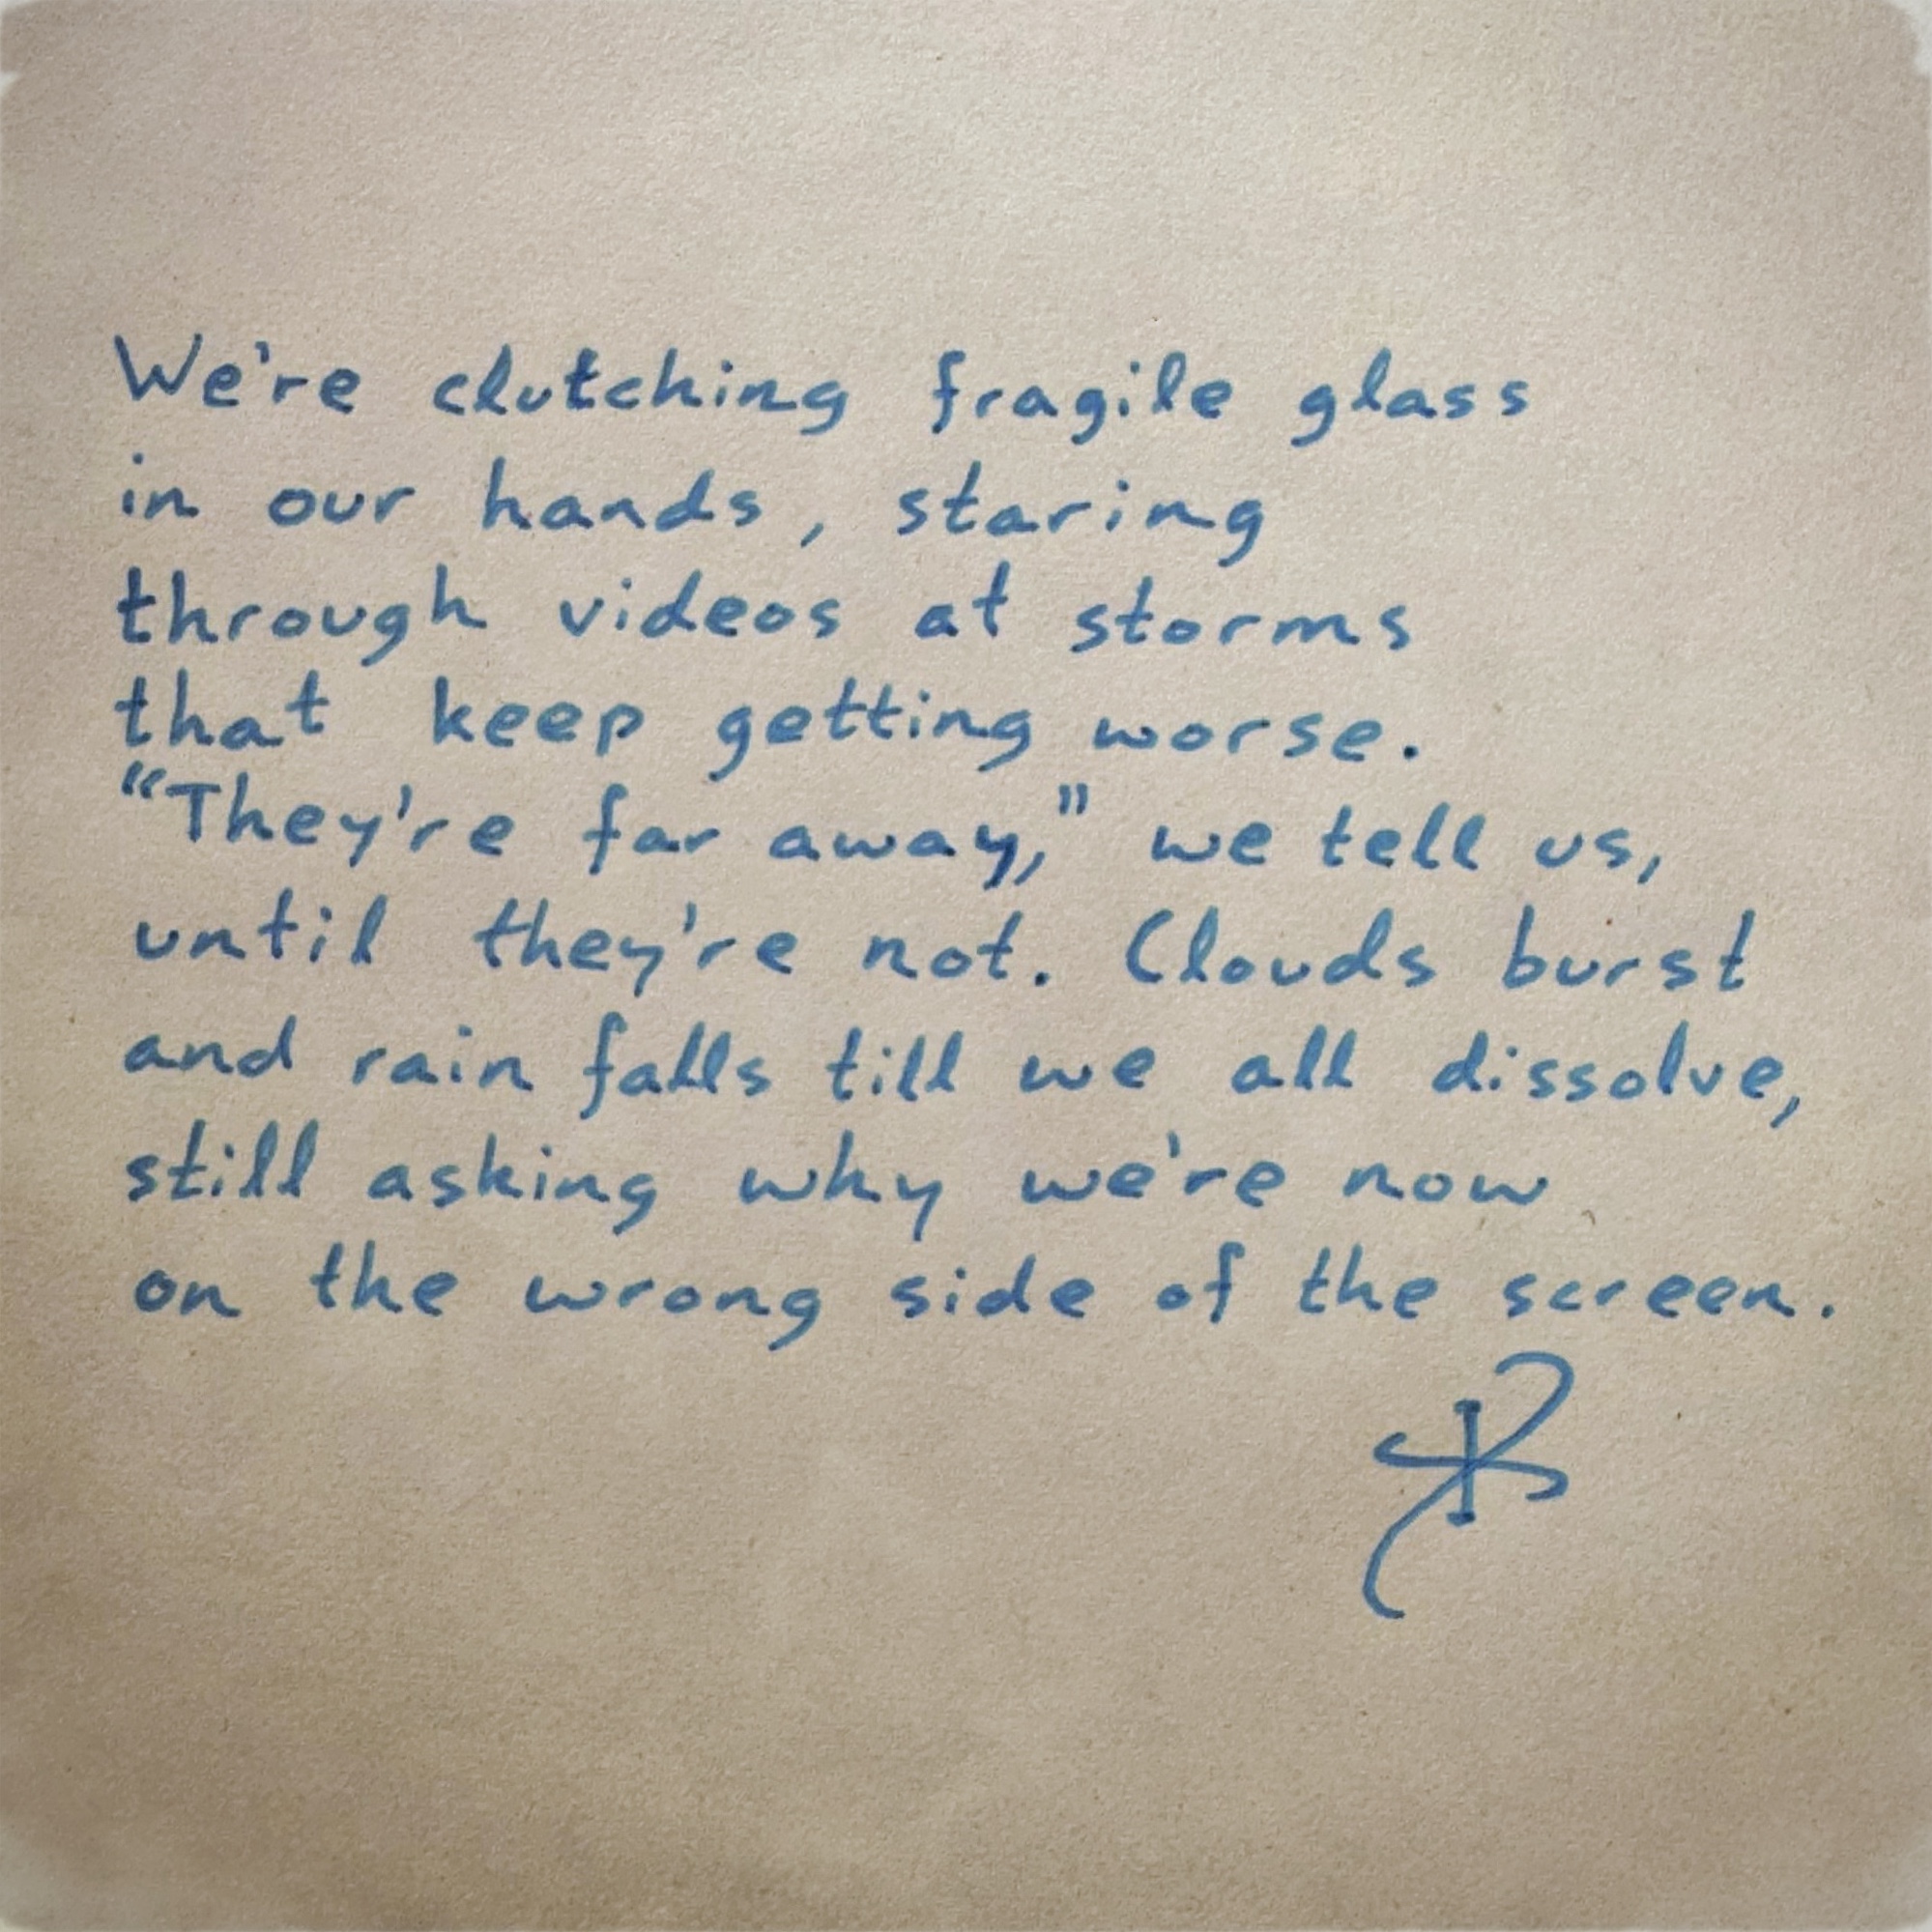 We're clutching fragile glass
in our hands, staring
through videos at storms
that keep getting worse.
"They're far away," we tell us,
until they're not. Clouds burst
and rain falls till we all dissolve,
still asking why we're now
on the wrong side of the screen.